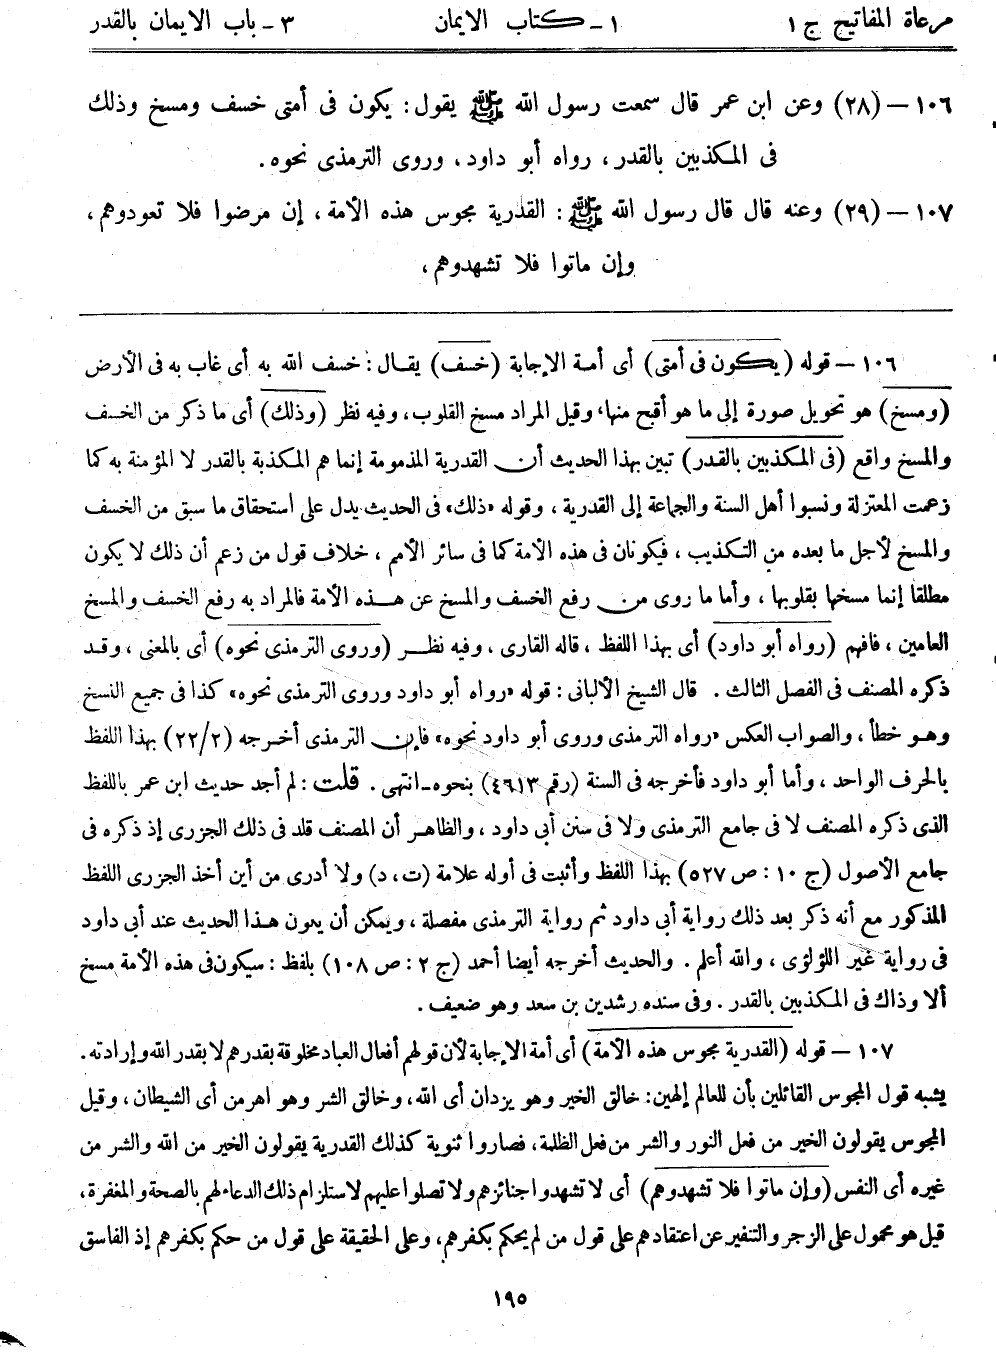 مرعاة المفاتيح ج ١ ١ ـ كتاب الايمان ٣ ـ باب الايمان بالقدر
١٠٦ — (٢٨) وعن ابن عمر قال سمعت رسول الله ﷺ يقول : يكون فى أمتى خسف ومسخ وذلك
فى المكذبين بالقدر ، رواه أبو داود ، وروى الترمذى نحوه .
١٠٧ — (٢٩) وعنه قال قال رسول الله ﷺ : القدرية مجوس هذه الأمة ، إن مرضوا فلا تعودوهم ،
وإن ماتوا فلا تشهدوهم ،
١٠٦ — قوله (يكون فى أمتى) أى أمة الإجابة (خسف) يقال : خسف الله به أى غاب به فى الأرض
(ومسخ) هو تحويل صورة إلى ما هو أقبح منها، وقيل المراد مسخ القلوب ، وفيه نظر (وذلك) أى ما ذكر من الخسف
والمسخ واقع (فى المكذبين بالقدر) تبين بهذا الحديث أن القدرية المذمومة إنما هم المكذبة بالقدر لا المؤمنة به كما
زعمت المعتزلة ونسبوا أهل السنة والجماعة إلى القدرية ، وقوله «ذلك» فى الحديث يدل على استحقاق ما سبق من الخسف
والمسخ لأجل ما بعده من التكذيب ، فيكونان فى هذه الأمة كما فى سائر الأمم ، خلاف قول من زعم أن ذلك لا يكون
مطلقا إنما مسخها بقلوبها ، وأما ما روى من رفع الخسف والمسخ عن هذه الأمة فالمراد به رفع الخسف والمسخ
العامين ، فافهم (رواه أبو داود) أى بهذا اللفظ ، قاله القارى ، وفيه نظر (وروى الترمذى نحوه) أى بالمعنى ، وقد
ذكره المصنف فى الفصل الثالث . قال الشيخ الألبانى : قوله «رواه أبو داود وروى الترمذى نحوه» كذا فى جميع النسخ
وهو خطأ ، والصواب العكس «رواه الترمذى وروى أبو داود نحوه» فإن الترمذى أخرجه (٢/٢٢) بهذا اللفظ
بالحرف الواحد ، وأما أبو داود فأخرجه فى السنة (رقم ٤٦١٣) بنحوه ـ انتهى . قلت : لم أجد حديث ابن عمر باللفظ
الذى ذكره المصنف لا فى جامع الترمذى ولا فى سنن أبى داود ، والظاهر أن المصنف قلد فى ذلك الجزرى إذ ذكره فى
جامع الأصول (ج ١٠ : ص ٥٢٧) بهذا اللفظ وأثبت فى أوله علامة (ت ، د) ولا أدرى من أين أخذ الجزرى اللفظ
المذكور مع أنه ذكر بعد ذلك رواية أبى داود ثم رواية الترمذى مفصلة ، ويمكن أن يعون هذا الحديث عند أبى داود
فى رواية غير اللؤلؤى ، والله أعلم . والحديث أخرجه أيضا أحمد (ج ٢ : ص ١٠٨) بلفظ : سيكون فى هذه الأمة مسخ
ألا وذاك فى المكذبين بالقدر . وفى سنده رشدين بن سعد وهو ضعيف .
١٠٧ — قوله (القدرية مجوس هذه الأمة) أى أمة الإجابة لأن قولهم أفعال العباد مخلوقة بقدرهم لا بقدر الله وإرادته .
يشبه قول المجوس القائلين بأن للعالم إلهين : خالق الخير وهو يزدان أى الله ، وخالق الشر وهو اهرمن أى الشيطان ، وقيل
المجوس يقولون الخير من فعل النور والشر من فعل الظلمة ، فصاروا ثنوية كذلك القدرية يقولون الخير من الله والشر من
غيره أى النفس (وإن ماتوا فلا تشهدوهم) أى لا تشهدوا جنائزهم ولا تصلوا عليهم لاستلزام ذلك الدعاء لهم بالصحة والمغفرة ،
قيل هو محمول على الزجر والتنفير عن اعتقادهم على قول من لم يحكم بكفرهم ، وعلى الحقيقة على قول من حكم بكفرهم إذ الفاسق
١٩٥